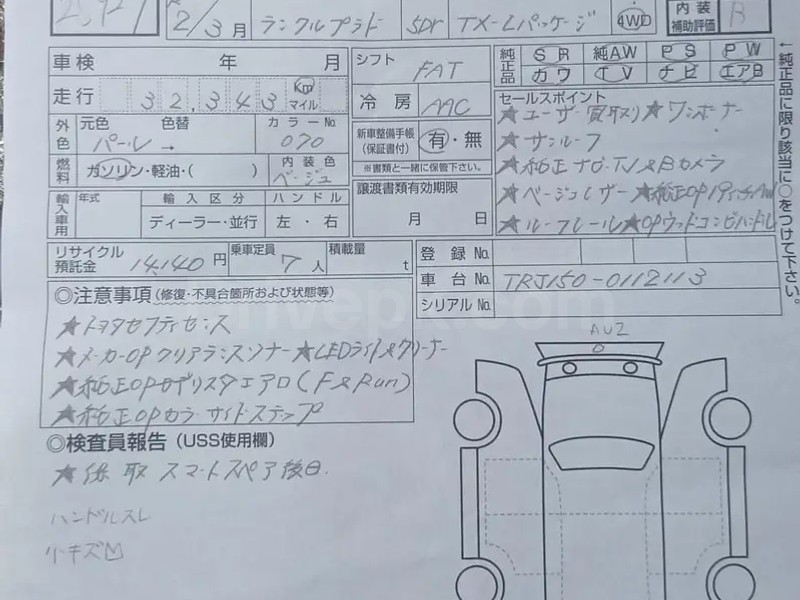 R2/3月 ランクルプラド 5DR TX-Lパッケージ 4WD 内装補助評価 B
車検 年 月 シフト FAT 純正品 SR 純AW PS PW
カワ TV ナビ エアB
走行 32,343 Km マイル 冷房 AAC
セールスポイント
★ユーザー買取り★ワンオーナー
外色 元色 パール 色替 → カラーNo. 070 新車整備手帳(保証書付) 有・無
※書類と一緒に保管下さい。
★サンルーフ
燃料 ガソリン・軽油・( ) 内装色 ベージュ
★純正ナビ・TV&Bカメラ
輸入車用 年式 輸入区分 ハンドル 譲渡書類有効期限
ディーラー・並行 左・右 月 日
★ベージュレザー★純正OP
★ルーフレール★OPウッドコンビハンドル
リサイクル預託金 14,140円 乗車定員 7人 積載量 t
登録No.
車台No. TRJ150-0112113
シリアルNo.
←純正品に限り該当に○をつけて下さい。
◎注意事項(修復・不具合個所および状態等)
★トヨタセーフティセンス
★メーカーOPクリアランスソナー★LEDライト&クリーナー
★純正OPモデリスタエアロ(F&Run)
★純正OPカラードサイドステップ
AUZ
◎検査員報告(USS使用欄)
★係 取 スマートスペア後日
ハンドルスレ
小キズ凹